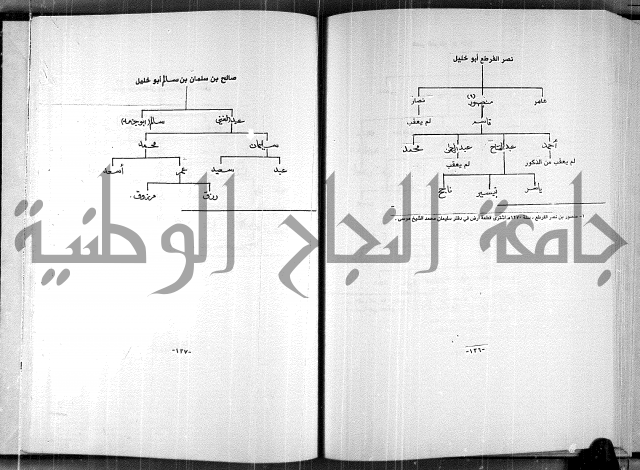 نصر القرطع أبو خليل
عامر منصور (١) نصار
قاسم لم يعقب
أحمد عبد الفتاح عبد الغني محمد
لم يعقب من الذكور لم يعقب
ياسر تيسير ناجح
١- منصور بن نصر القرطع ، سنة ١٢٧٠هـ اشترى قطعة أرض في دفتر سليمان محمد الشيخ موسى .
-١٢٦-
صالح بن سلمان بن سالم أبو خليل
عبد الغني سالم
سليمان محمد
عبد سعيد عمر أسعد
رزق مرزوق
-١٢٧-
جامعة النجاح الوطنية